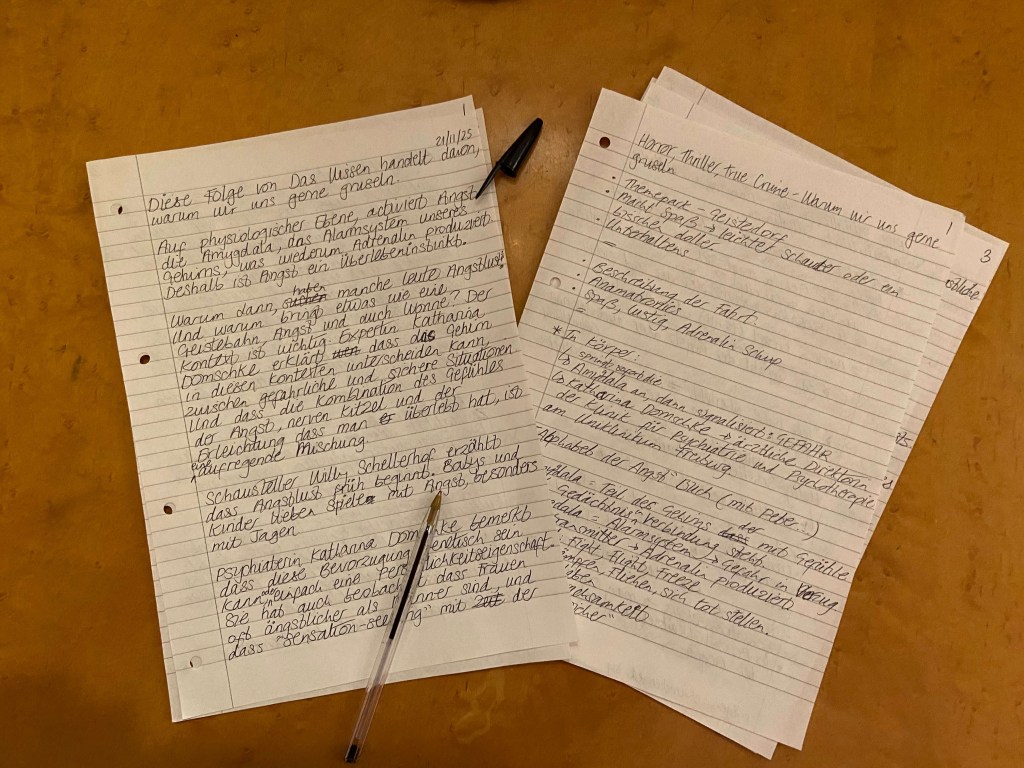 1
21/11/25
Diese Folge von Das Wissen handelt davon,
warum wir uns gerne gruseln.
Auf physiologischer Ebene, activiert Angst
die Amygdala, das Alarmsystem unseres
Gehirns, was wiederum Adrenalin produziert.
Deshalb ist Angst ein Überlebeninstinkt.
Warum dann, haben manche leute Angstlust?
Und warum bringt etwas wie eine
Geistebahn, Angst und auch Wonne? Der
Kontext ist wichtig. Expertin Katharina
Domschke erklärt dass das Gehirn
in diesen Kontexten unterscheiden kann,
zwischen gefährliche und sichere Situationen
Und dass die Kombination des Gefühles
der Angst, nerven kitzel und der
Erleichtung dass man überlebt hat, ist
Aufregende Mischung.
Schausteller Willy Schellerhof erzählt
dass Angstlust früh beginnt, Babys und
Kinder lieben Spiele mit Angst, besonders
mit Jagen
Psychiaterin Katharina bemerkt
dass diese Bevorzugung genetisch sein
kann, oder einfach eine
Sie hat auch dass Frauen
oft ängstlicher als Männer sind, und
dass "Sensation-seeking" mit der
1
Horror, Thriller, True Crime - Warum wir uns gerne
gruseln
• Themepark - Geisterdorf
macht Spaß → leichter schauder oder ein
bisschen doller
• Unterhaltens
=
• Beschreibung der Fahrt.
• Animatronics
• Spaß, lustig, Adrenalin Schub
=
* In Körper:
↳ Amygdala an, dann signalisiert: GEFAHR
↳ Katharina Domschke → ärztliche Direktorin
der Klinik für Psychiatrie und Psychotherapie
am Uniklinikum Freiburg
der Angst" Buch (mit
= Teil des Gehirns der mit Gefühle
Gedächtnis in Verbindung steht
= Alarmsystem ↳ Gefahr in Verzug
Transmitter → Adrenalin produziert
Fight, Flight, Freeze
Fliehen, sich tot stellen.
3